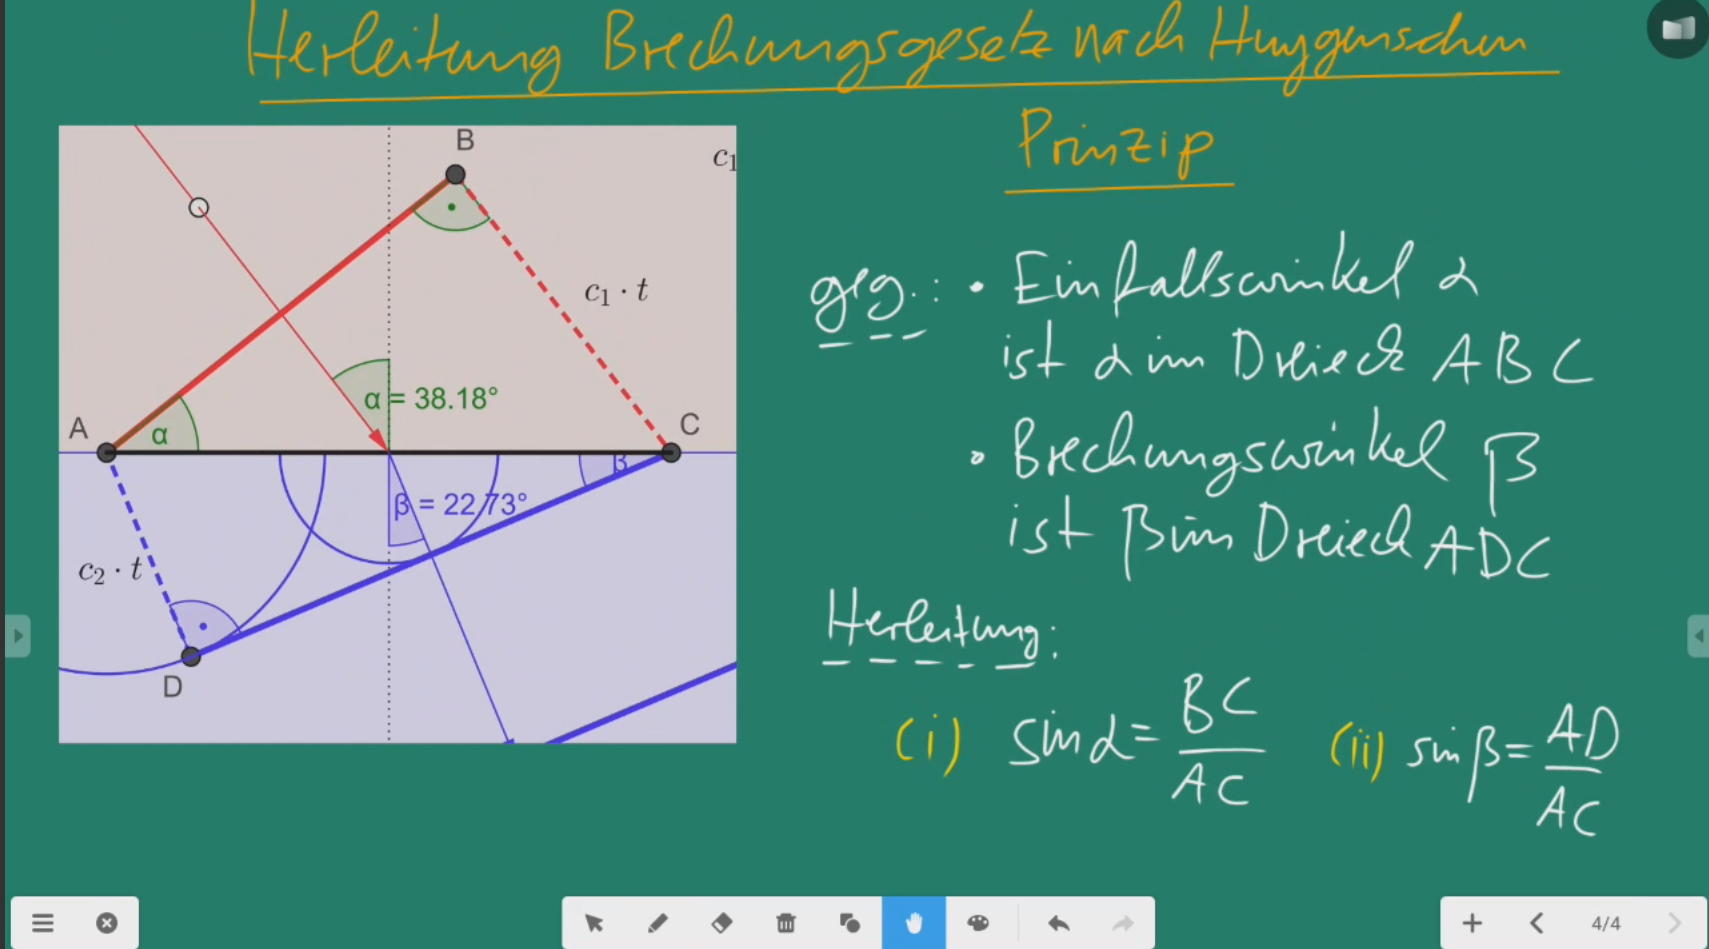 Herleitung Brechungsgesetz nach Huygenschen
Prinzip
B
c₁
c₁ · t
α = 38.18°
A
α
C
β
β = 22.73°
c₂ · t
D
geg.: • Einfallswinkel α
ist α im Dreieck ABC
• Brechungswinkel β
ist β im Dreieck ADC
Herleitung:
(i) sin α = BC / AC (ii) sin β = AD / AC
4/4